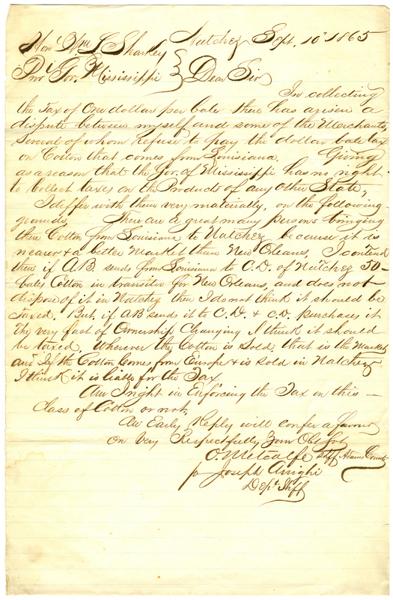 Natchez Sept. 10th 1865
Hon. Wm L Sharkey
Prov. Gov. Mississippi } Dear Sir
In collecting
the Tax of One dollar per bale there has arisen a
dispute between myself and some of the Merchants,
Several of whom Refuse to pay the dollar bale tax
on Cotton that comes from Louisiana. Giving
as a reason that the Gov. of Mississippi has no right
to Collect taxes on the Products of any other State,
I differ with them very materially, on the following
grounds. There are a great many persons bringing
their Cotton from Louisiana to Natchez because it is
nearer & a better Market than New Orleans, I contend
then if A.B. sends from Louisiana to C.D. of Natchez 50
bales Cotton in transitu for New Orleans, and does not
dispose of it in Natchez then I do not think it should be
Taxed. But, if AB sends it to C.D. & C.D. purchases it
The very fact of Ownership Changing I think it should
be taxed. Wherever the Cotton is Sold, that is the Market
and If the Cotton Comes from Europe & is Sold in Natchez
I think it is liable for the Tax
Am I right in Enforcing the Tax on this
Class of Cotton or not,
An Early Reply will confer a favor
on Very Respectfully Your Obt Svt
O. Metcalfe Shff. Adams County
pr Joseph Arrighi
Depy Shff